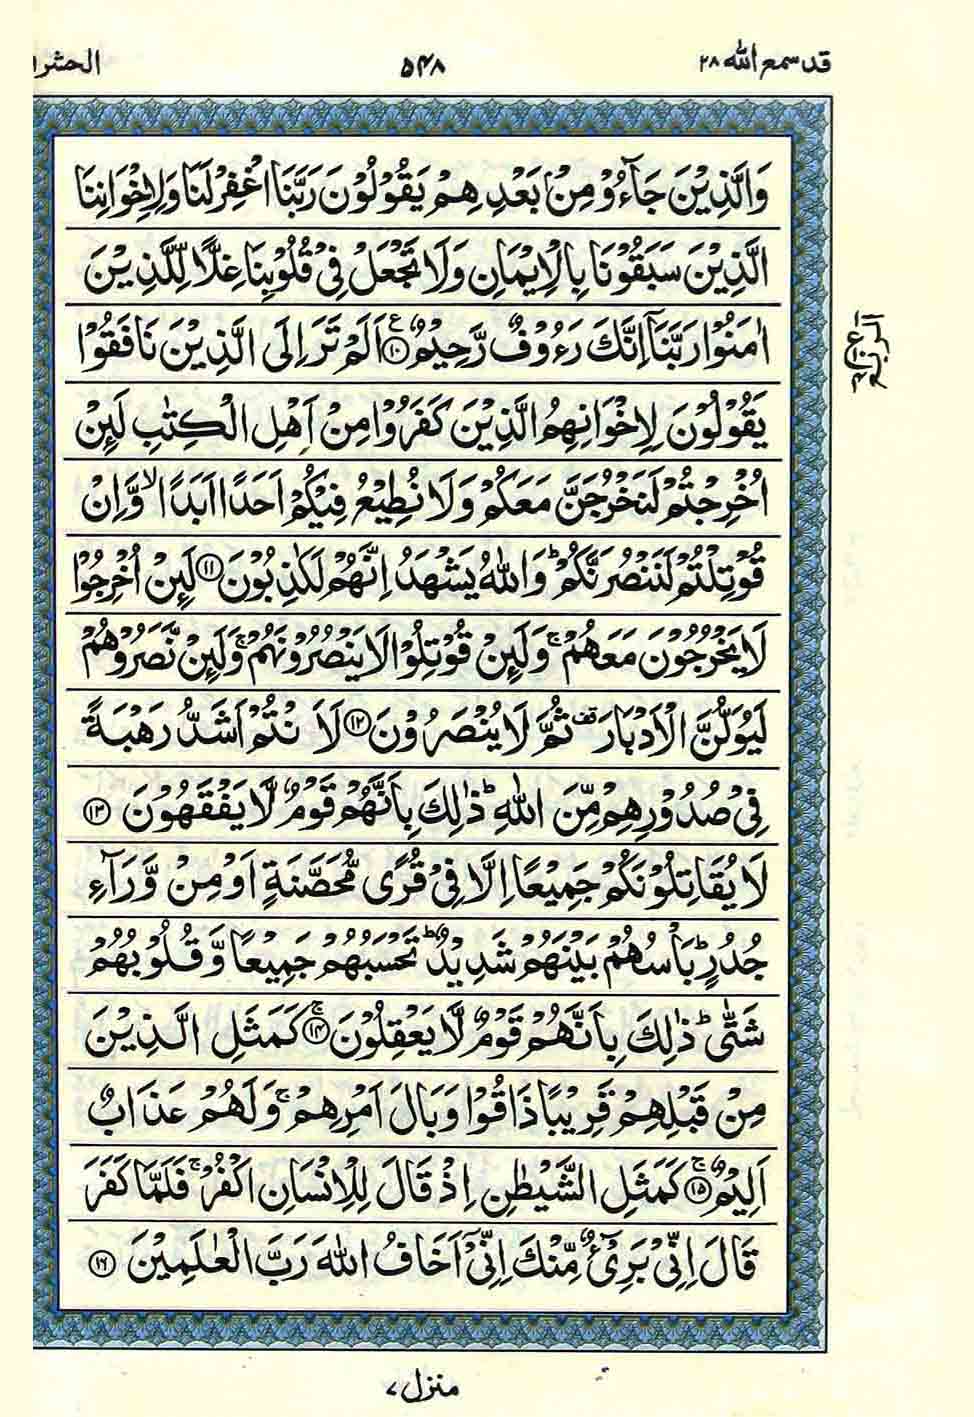 قد سمع الله ۲۸
۵۴۸
الحشر
وَالَّذِیْنَ جَآءُوْ مِنْۢ بَعْدِ هِمْ یَقُوْلُوْنَ رَبَّنَا اغْفِرْ لَنَا وَلِاِخْوَانِنَا
الَّذِیْنَ سَبَقُوْنَا بِالْاِیْمَانِ وَلَا تَجْعَلْ فِیْ قُلُوْبِنَا غِلًّا لِّلَّذِیْنَ
اٰمَنُوْا رَبَّنَاۤ اِنَّكَ رَءُوْفٌ رَّحِیْمٌ ﴿۱۰﴾ اَلَمْ تَرَ اِلَی الَّذِیْنَ نَافَقُوْا
یَقُوْلُوْنَ لِاِخْوَانِهِمُ الَّذِیْنَ كَفَرُوْا مِنْ اَهْلِ الْكِتٰبِ لَىِٕنْ
اُخْرِجْتُمْ لَنَخْرُجَنَّ مَعَكُمْ وَلَا نُطِیْعُ فِیْكُمْ اَحَدًا اَبَدًا ۙ وَّاِنْ
قُوْتِلْتُمْ لَنَنْصُرَنَّكُمْ ؕ وَاللّٰهُ یَشْهَدُ اِنَّهُمْ لَكٰذِبُوْنَ ﴿۱۱﴾ لَىِٕنْ اُخْرِجُوْا
لَا یَخْرُجُوْنَ مَعَهُمْ ۚ وَلَىِٕنْ قُوْتِلُوْا لَا یَنْصُرُوْنَهُمْ ۚ وَلَىِٕنْ نَّصَرُوْهُمْ
لَیُوَلُّنَّ الْاَدْبَارَ ۫ ثُمَّ لَا یُنْصَرُوْنَ ﴿۱۲﴾ لَاَ نْتُمْ اَشَدُّ رَهْبَةً
فِیْ صُدُوْرِهِمْ مِّنَ اللّٰهِ ؕ ذٰلِكَ بِاَنَّهُمْ قَوْمٌ لَّا یَفْقَهُوْنَ ﴿۱۳﴾
لَا یُقَاتِلُوْنَكُمْ جَمِیْعًا اِلَّا فِیْ قُرًی مُّحَصَّنَةٍ اَوْ مِنْ وَّرَآءِ
جُدُرٍ ؕ بَاْسُهُمْ بَیْنَهُمْ شَدِیْدٌ ؕ تَحْسَبُهُمْ جَمِیْعًا وَّقُلُوْبُهُمْ
شَتّٰی ؕ ذٰلِكَ بِاَنَّهُمْ قَوْمٌ لَّا یَعْقِلُوْنَ ﴿۱۴﴾ۚ كَمَثَلِ الَّذِیْنَ
مِنْ قَبْلِهِمْ قَرِیْبًا ذَاقُوْا وَبَالَ اَمْرِهِمْ ۚ وَلَهُمْ عَذَابٌ
اَلِیْمٌ ﴿۱۵﴾ۚ كَمَثَلِ الشَّیْطٰنِ اِذْ قَالَ لِلْاِنْسَانِ اكْفُرْ ۚ فَلَمَّا كَفَرَ
قَالَ اِنِّیْ بَرِیْٓءٌ مِّنْكَ اِنِّیْۤ اَخَافُ اللّٰهَ رَبَّ الْعٰلَمِیْنَ ﴿۱۶﴾
منزل ۷